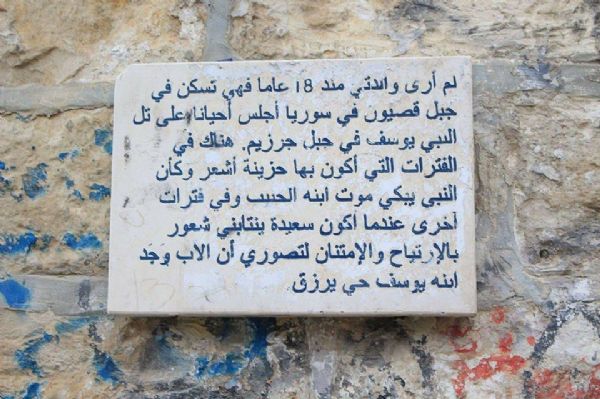 لم أرى والدتي منذ 18 عاما فهي تسكن في
جبل قصيون في سوريا أجلس أحيانا على تل
النبي يوسف في جبل جرزيم. هناك في
الفترات التي أكون بها حزينة أشعر وكأن
النبي يبكي موت ابنه الحبيب وفي فترات
أخرى عندما أكون سعيدة ينتابني شعور
بالإرتياح والإمتنان لتصوري أن الاب وجد
ابنه يوسف حي يرزق